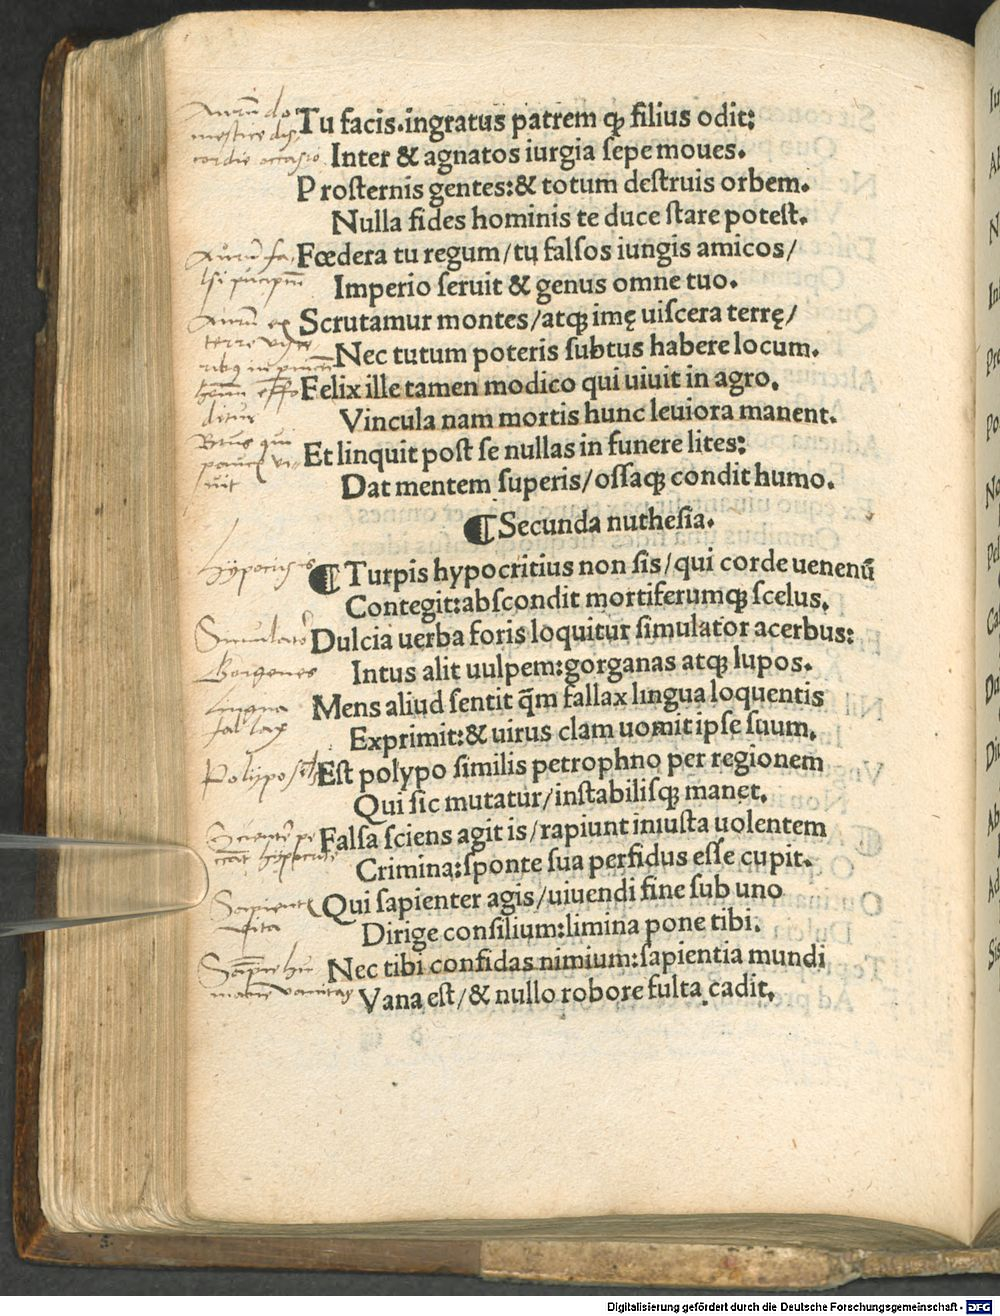 Tu facis.ingratus patrem ꝙ filius odit:
Inter & agnatos iurgia ſepe moues.
Proſternis gentes:& totum deſtruis orbem.
Nulla fides hominis te duce ſtare poteſt.
Fœdera tu regum/tu falſos iungis amicos/
Imperio ſeruit & genus omne tuo.
Scrutamur montes/atqꝫ imę uiſcera terrę/
Nec tutum poteris ſubtus habere locum.
Felix ille tamen modico qui uiuit in agro.
Vincula nam mortis hunc leuiora manent.
Et linquit poſt ſe nullas in funere lites:
Dat mentem ſuperis/oſſaqꝫ condit humo.
¶Secunda nutheſia.
¶Turpis hypocritius non ſis/qui corde uenenū
Contegit:abſcondit mortiferumqꝫ ſcelus.
Dulcia uerba foris loquitur ſimulator acerbus:
Intus alit uulpem:gorganas atqꝫ lupos.
Mens aliud ſentit q̄m fallax lingua loquentis
Exprimit:& uirus clam uomit ipſe ſuum.
Eſt polypo ſimilis petrophno per regionem
Qui ſic mutatur/inſtabiliſqꝫ manet.
Falſa ſciens agit is/rapiunt iniuſta uolentem
Crimina:ſponte ſua perfidus eſſe cupit.
Qui ſapienter agis/uiuendi fine ſub uno
Dirige conſilium:limina pone tibi.
Nec tibi confidas nimium:ſapientia mundi
Vana eſt/& nullo robore fulta cadit.
Gorgones
Lingua
fallax
Digitalisierung gefördert durch die Deutsche Forschungsgemeinschaft - DFG